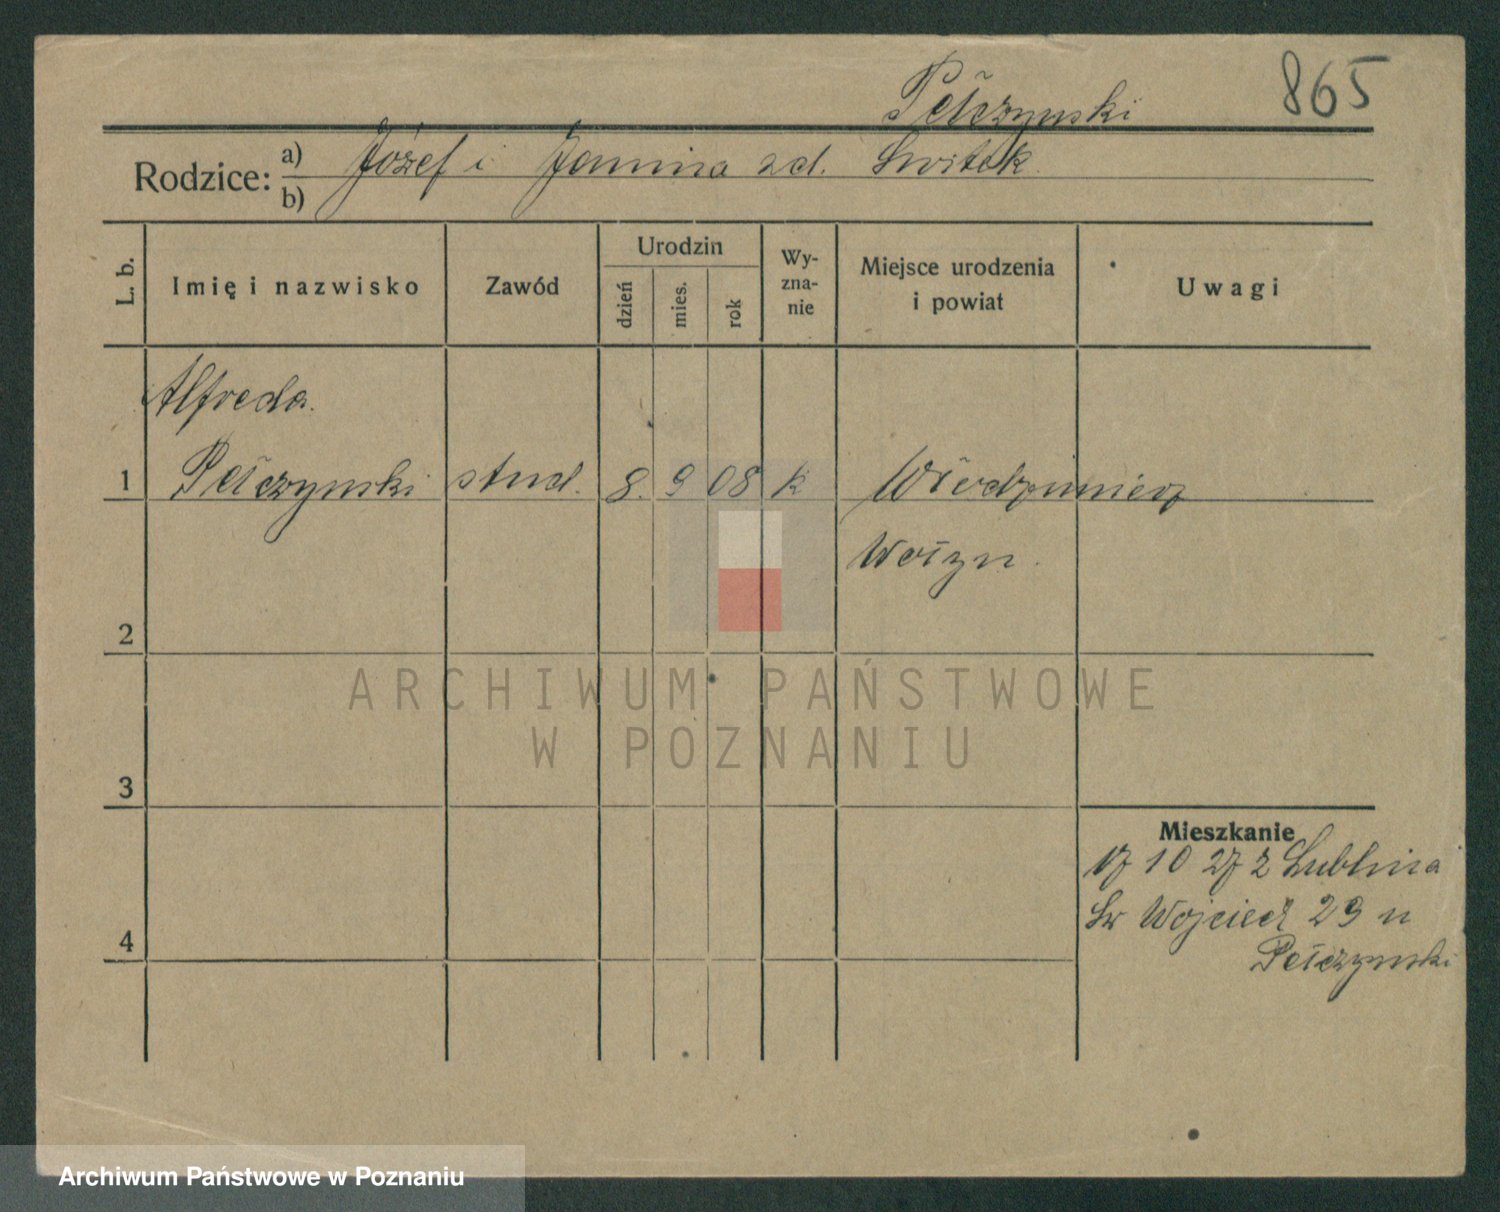 865
Pełczynski
Rodzice: a) Józef i Janina zd. Switek
b)
L. b. Imię i nazwisko Zawód Urodzin dzień mies. rok Wy-zna-nie Miejsce urodzenia i powiat Uwagi
Alfreda
1 Pełczynski stud. 8. 9 08 k Włodzimierz
Wołyn
2
3
Mieszkanie
17 10 27 z Lublina
Św Wojciech 29 u
4
Pełczynski
ARCHIWUM PAŃSTWOWE
W POZNANIU
Archiwum Państwowe w Poznaniu